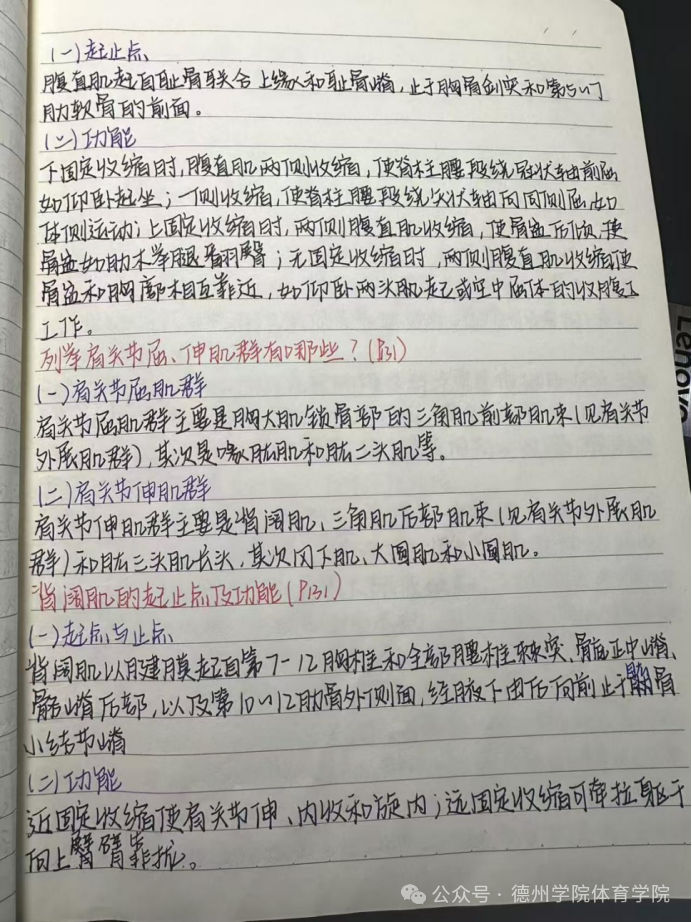 (一)起止点
腹直肌起自耻骨联合上缘和耻骨嵴,止于胸骨剑突和第5~7
肋软骨的前面。
(二)功能
下固定收缩时,腹直肌两侧收缩,使脊柱腰段绕冠状轴前屈
如仰卧起坐;一侧收缩,使脊柱腰段绕矢状轴向同侧屈,如
体侧运动;上固定收缩时,两侧腹直肌收缩,使骨盆后倾,
骨盆如肋木举腿翻臀;无固定收缩时,两侧腹直肌收缩使
骨盆和胸廓相互靠近,如仰卧两头肌起或空中屈体的收腹工
工作。
列举肩关节屈、伸肌群有哪些?(P131)
(一)肩关节屈肌群
肩关节屈肌群主要是胸大肌锁骨部的三角肌前部肌束(见肩关节
外展肌群),其次是喙肱肌和肱二头肌等。
(二)肩关节伸肌群
肩关节伸肌群主要是背阔肌、三角肌后部肌束(见肩关节外展肌
群)和肱三头肌长头,其次冈下肌、大圆肌和小圆肌。
背阔肌的起止点及功能(P131)
(一)起点与止点
背阔肌以腱膜起自第7-12胸椎和全部腰椎棘突、骶正中嵴、
髂嵴后部,以及第10~12肋骨外侧面,经腋下由后向前止于肱骨
小结节嵴
(二)功能
近固定收缩使肩关节伸、内收和旋内;远固定收缩可牵拉躯干
向上臂靠拢。
Lenovo
公众号·德州学院体育学院